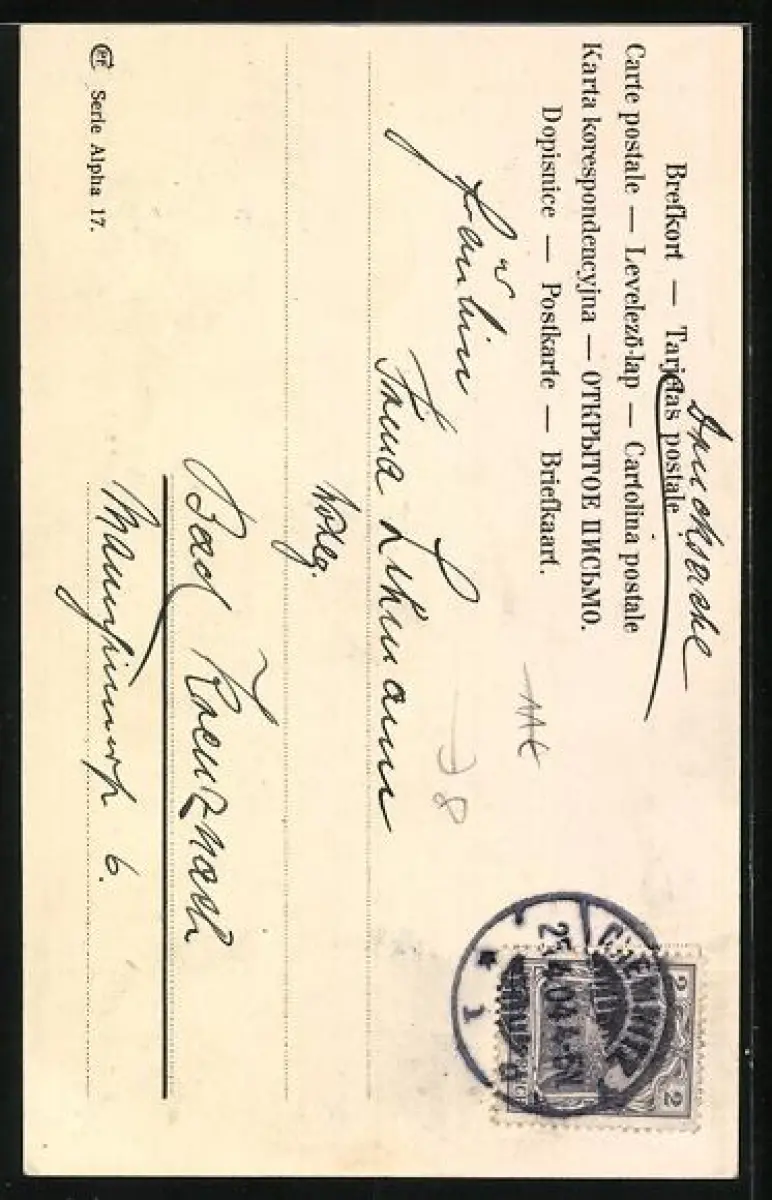 Brefkort — Tarjetas postale
Carte postale — Levelező-lap — Cartolina postale
Karta korespondencyjna — ОТКРЫТОЕ ПИСЬМО.
Dopisnice — Postkarte — Briefkaart.
Drucksache
Fräulein
Anna Lehmann
Bad Kreuznach
6.
CHEMNITZ
25.4.04. 4-5N
1
2 2
Serie Alpha 17.